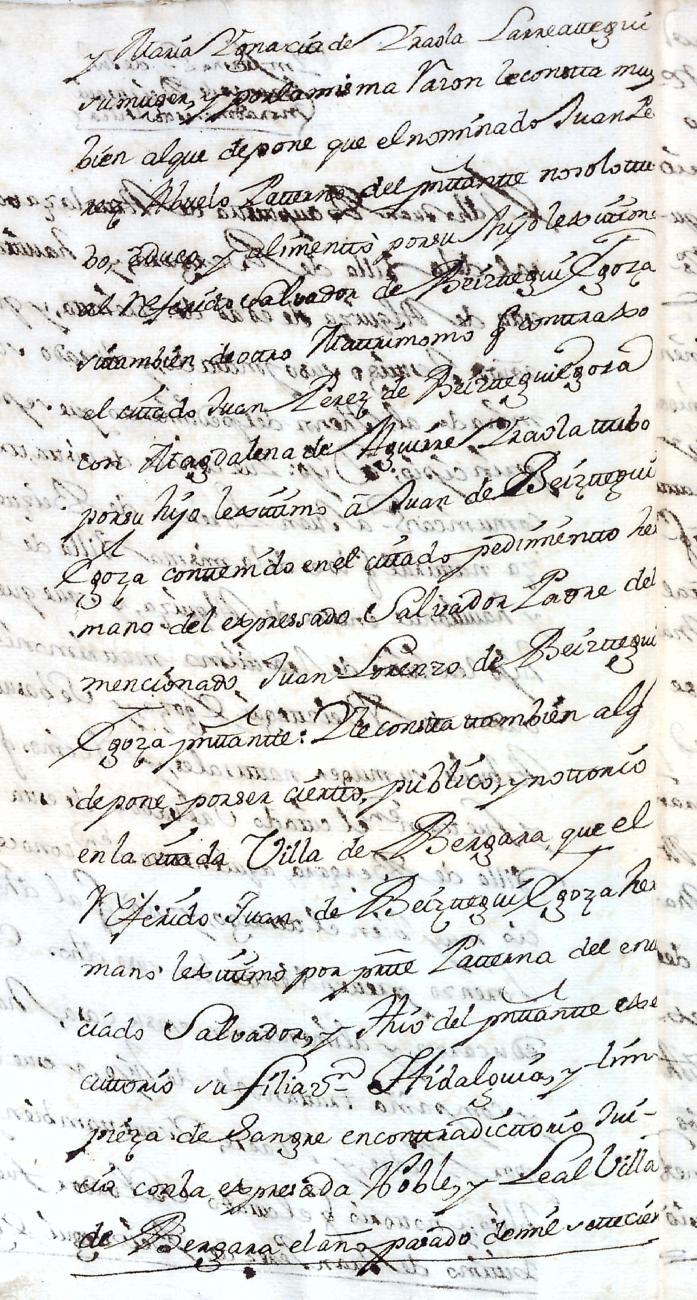 y Maria Ygnacia de Yraola Larreattegui
su muger, y por la misma razon le constta muy
bien al que depone que el nominado Juan Pe
rez Abuelo Patterno del pnttantte no solo ttu
bo, educo, y alimentto por su hijo lexittimo
al Referido Salvador de Beizttegui Egoza
si ttambien de ottro Mattrimonio q conttraxo
el cittado Juan Perez de Beizttegui Egoza
con Magdalena de Aguirre Yraola ttubo
por su hijo lexittimo â Juan de Beizttegui
Egoza conttenido en el cittado pedimentto her
mano del expressado Salvador Padre del
mencionado Juan Lorenzo de Beizttegui
Egoza pnttantte: Y le constta ttambien al q
depone por ser ciertto, publico, y nottorio
en la cittada Villa de Bergara que el
Referido Juan de Beizttegui Egoza her
mano lexittimo por ptte Patterna del enun
ciado Salvador, y Thio del pnttantte exe
cuttorio su filiazn Hidalguia, y lim
pieza de Sangre en conttradicttorio Jui-
cio con la expresada Noble, y Leal Villa
de Bergara el año pasado de mil settecien